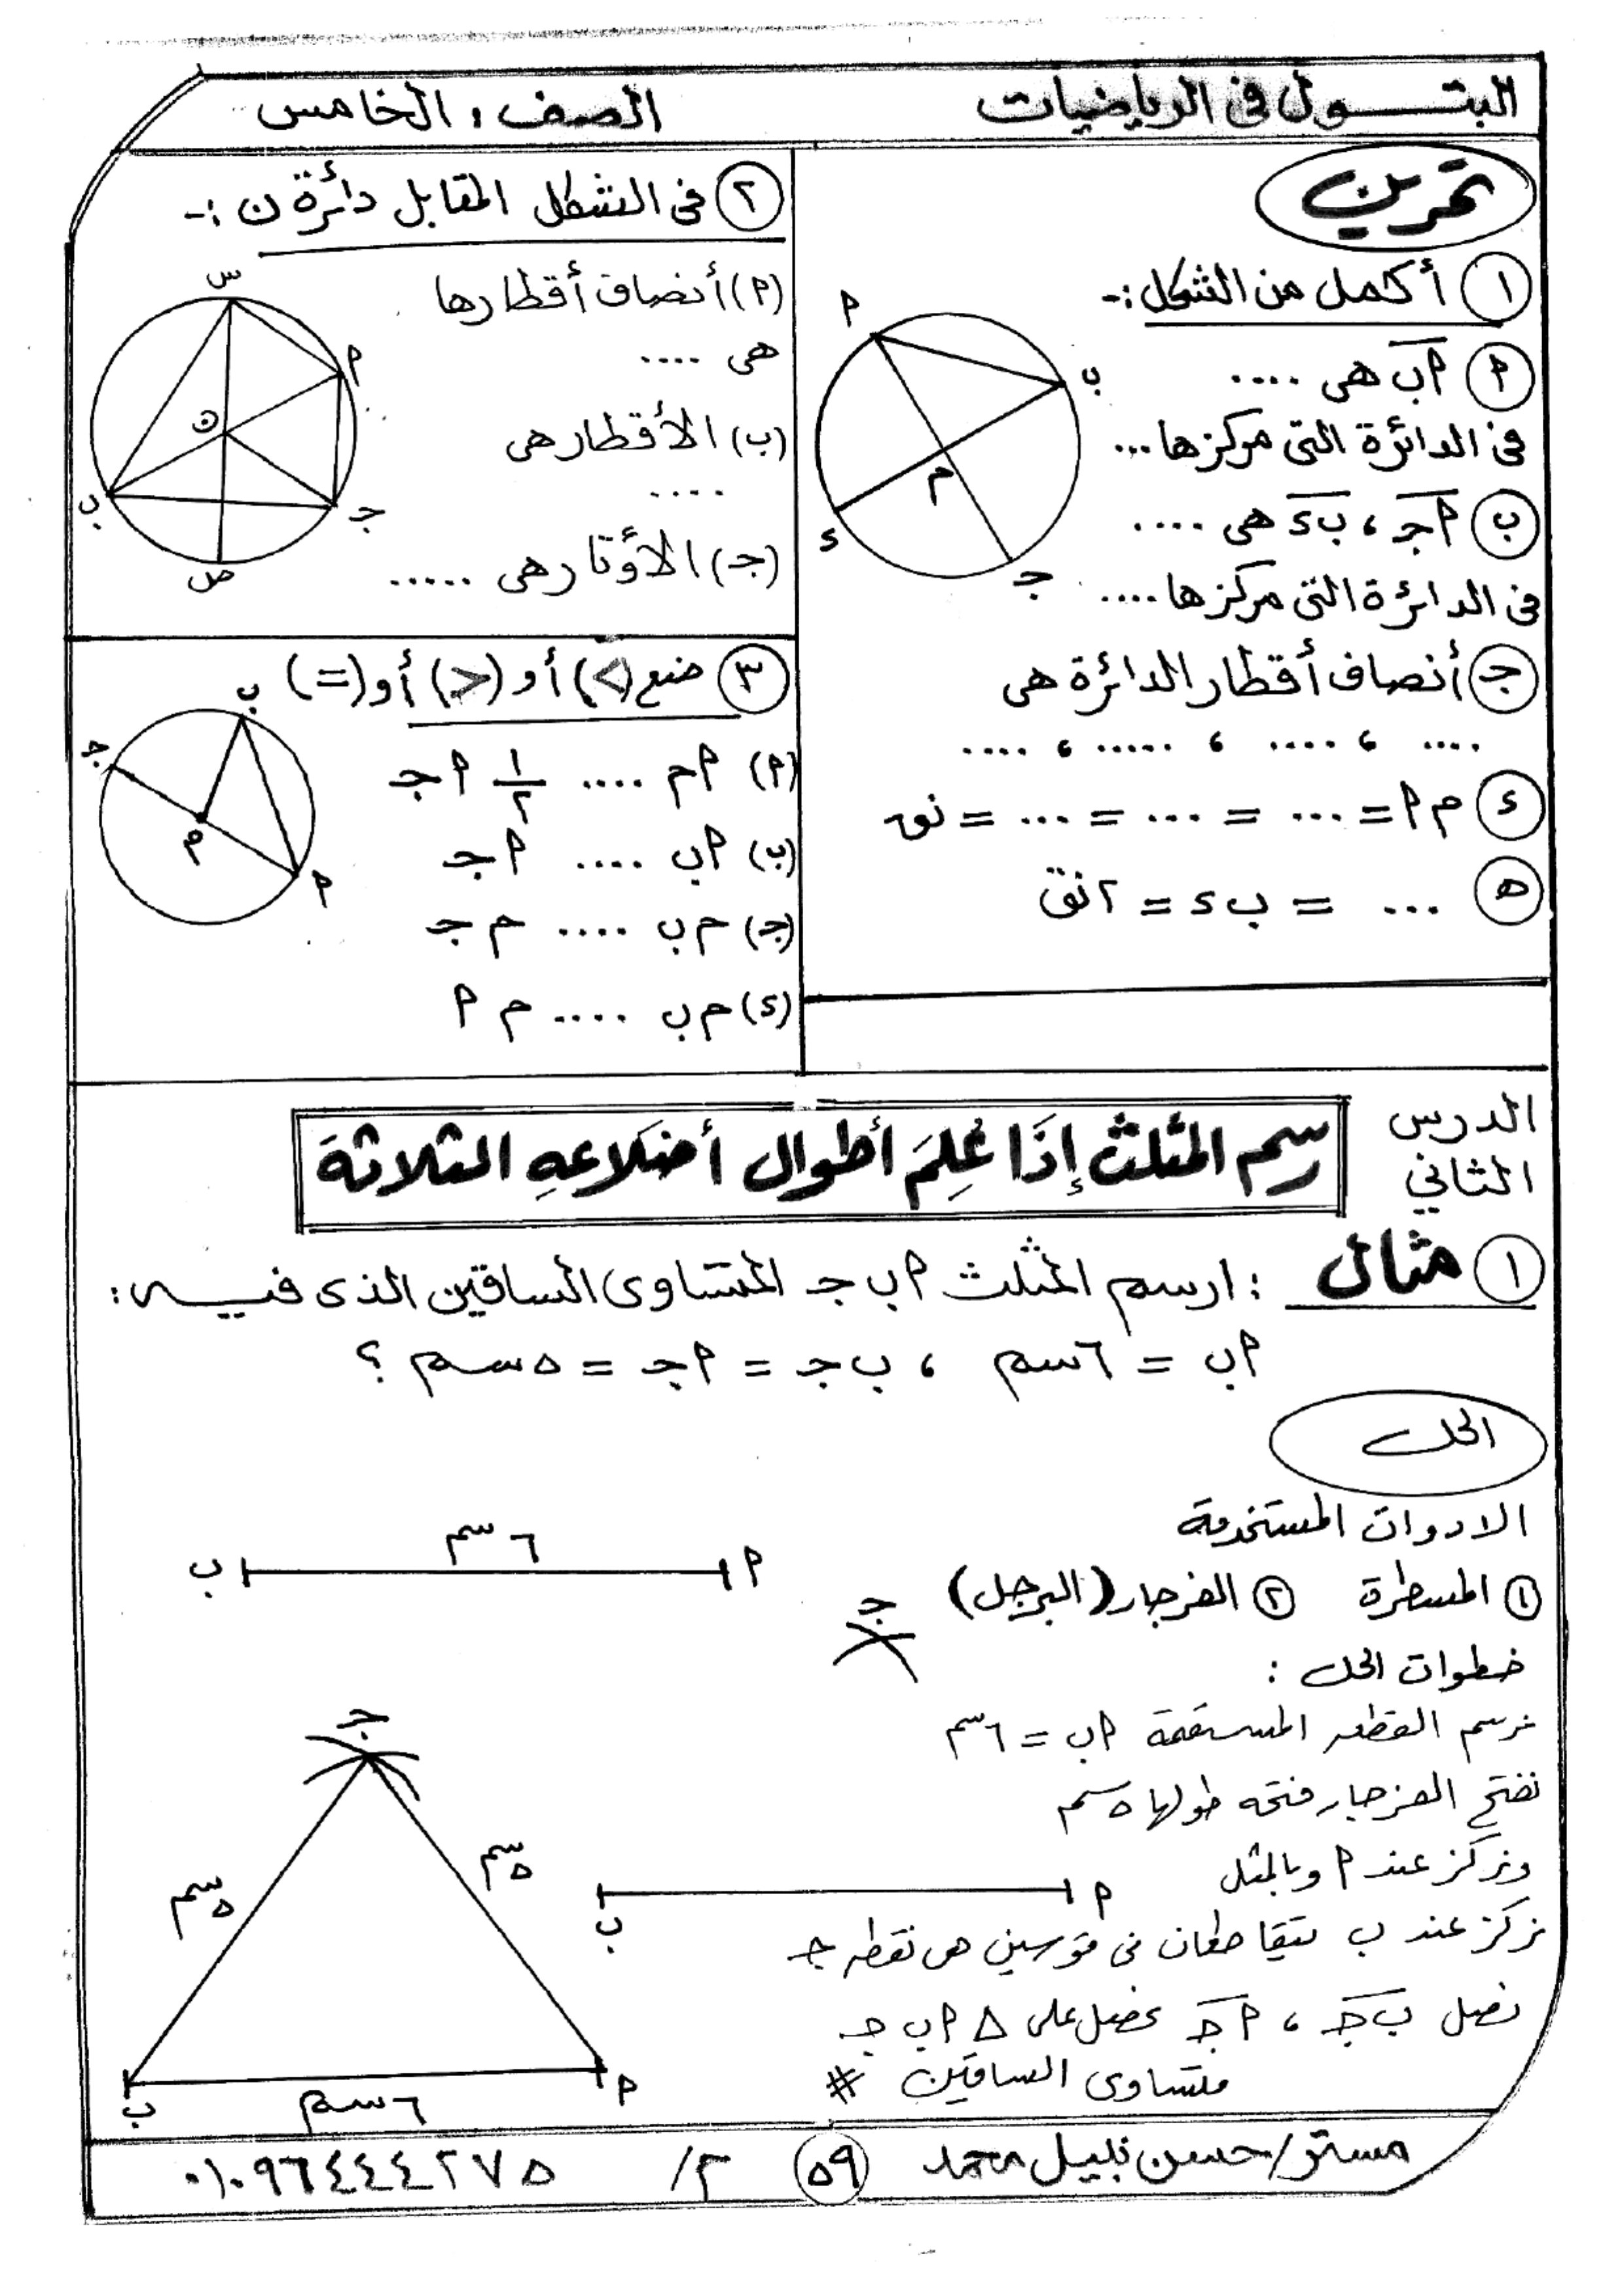 البتول فى الرياضيات
الصف : الخامس
تمرين
١ أكمل من الشكل :-
م
ب
م
ء
جـ
أ أب هى ....
فى الدائرة التى مركزها ...
ب أجـ ، بء هى ....
فى الدائرة التى مركزها ....
جـ أنصاف أقطار الدائرة هى
.... ، .... ، ..... ، ....
ء م أ = ... = ... = ... = نق
هـ ... = ب ء = ٢ نق
٢ فى الشكل المقابل دائرة ن :-
س
أ
ن
ب
جـ
ص
(أ) أنصاف أقطارها
هى ....
(ب) الأقطار هى
....
(جـ) الأوتار هى .....
٣ ضع (>) أو (<) أو (=)
ب
جـ
م
أ
(أ) أم .... ١/٢ أجـ
(ب) أب .... أجـ
(جـ) م ب .... م جـ
(ء) م ب .... م أ
الدرس
الثاني
رسم المثلث إذَا عُلِمَ أطوال أضلاعهِ الثلاثة
١ مثال : ارسم المثلث أ ب جـ المتساوى الساقين الذى فيه :
أب = ٦سم ، ب جـ = أجـ = ٥سم ؟
الحل
الادوات المستخدمة
١ المسطرة ٢ الفرجار (البرجل)
ب ٦سم أ
جـ
خطوات الحل :
نرسم القطعه المستقيمة أب = ٦سم
نفتح الفرجار فتحه طولها ٥سم
ونركز عند أ وبالمثل
أ
ب
نركز عند ب يتقاطعان فى قوسين هى نقطه جـ
نصل ب جـ ، أ جـ نحصل على Δ أ ب جـ
متساوى الساقين #
جـ
٥سم
٥سم
ب
٦سم
أ
مستر/حسن نبيل محمد
٥٩
م/ ٠١٠٩٦٤٤٤٢٧٥